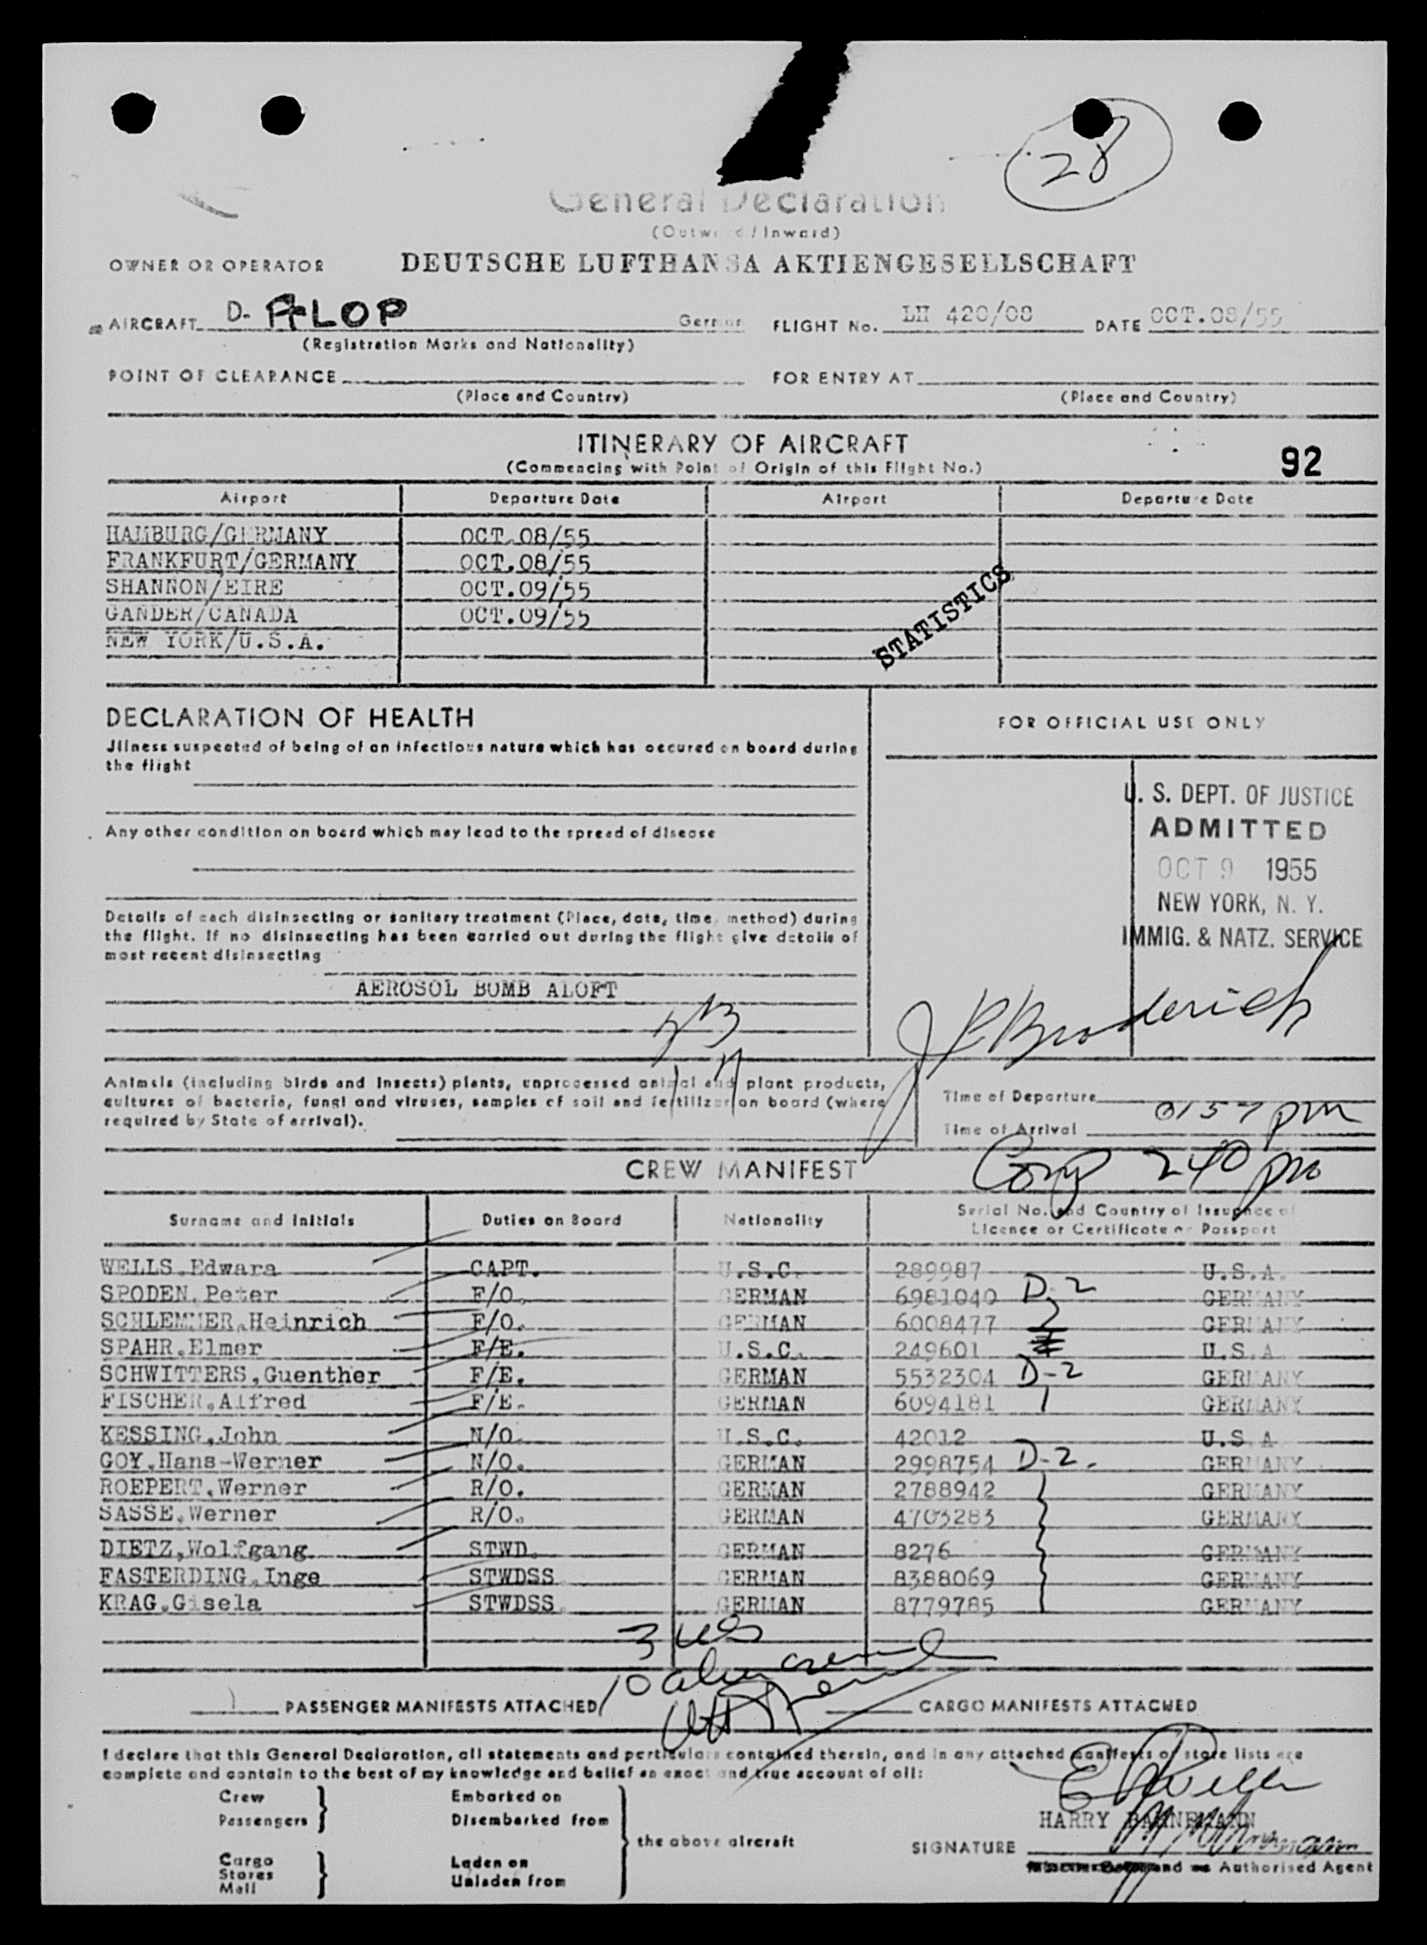 28
General Declaration
(Outward/Inward)
OWNER OR OPERATOR DEUTSCHE LUFTHANSA AKTIENGESELLSCHAFT
AIRCRAFT D- ALOP German FLIGHT No. LH 420/08 DATE OCT.08/55
(Registration Marks and Nationality)
POINT OF CLEARANCE FOR ENTRY AT
(Place and Country) (Place and Country)
ITINERARY OF AIRCRAFT
(Commencing with Point of Origin of this Flight No.) 92
Airport Departure Date Airport Departure Date
HAMBURG/GERMANY OCT.08/55
FRANKFURT/GERMANY OCT.08/55
SHANNON/EIRE OCT.09/55
GANDER/CANADA OCT.09/55
NEW YORK/U.S.A.
STATISTICS
DECLARATION OF HEALTH
Jllness suspected of being of an infectious nature which has occured on board during
the flight
Any other condition on board which may lead to the spread of disease
Details of each disinsecting or sanitary treatment (Place, date, time, method) during
the flight. If no disinsecting has been carried out during the flight give details of
most recent disinsecting
AEROSOL BOMB ALOFT
FOR OFFICIAL USE ONLY
U. S. DEPT. OF JUSTICE
ADMITTED
OCT 9 1955
NEW YORK, N. Y.
IMMIG. & NATZ. SERVICE
J P Broderick
Animals (including birds and insects) plants, unprocessed animal and plant products,
cultures of bacteria, fungi and viruses, samples of soil and fertilizer on board (where
required by State of arrival).
Time of Departure
0157 pm
Time of Arrival
Comp 240 pm
CREW MANIFEST
Surname and Initials Duties on Board Nationality Serial No. and Country of Issuance of
Licence or Certificate or Passport
WELLS,Edward CAPT. U.S.C. 289987 U.S.A.
SPODEN,Peter F/O. GERMAN 6981040 D-2 GERMANY
SCHLEMMER,Heinrich F/O. GERMAN 6008477 GERMANY
SPAHR,Elmer F/E. U.S.C. 249601 U.S.A
SCHWITTERS,Guenther F/E. GERMAN 5532304 D-2 GERMANY
FISCHER,Alfred F/E. GERMAN 6094181 GERMANY
KESSING,John N/O. U.S.C. 42012 U.S.A
GOY,Hans-Werner N/O. GERMAN 2998754 D-2. GERMANY
ROEPERT,Werner R/O. GERMAN 2788942 GERMANY
SASSE,Werner R/O. GERMAN 4703283 GERMANY
DIETZ,Wolfgang STWD. GERMAN 8276 GERMANY
FASTERDING,Inge STWDSS GERMAN 8388069 GERMANY
KRAG,Gisela STWDSS. GERMAN 8779785 GERMANY
3 USC
10 alien crew
PASSENGER MANIFESTS ATTACHED CARGO MANIFESTS ATTACHED
I declare that this General Dealaration, all statements and particulars contained therein, and in any attached manifests of store lists are
complete and contain to the best of my knowledge and belief an exact and true account of all:
Crew Embarked on
Passengers Disembarked from
the above aircraft
Cargo Laden on
Stores
Mail Unladen from
HARRY BAHNEMANN
SIGNATURE
Authorised Agent